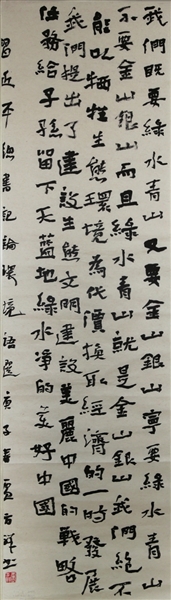 我們既要綠水青山又要金山銀山寧要綠水青山
不要金山銀山而且綠水青山就是金山銀山我們絕不
能以牺牲生態環境為代價換取經濟的一時發展
我們提出了建設生態文明建設美麗中國的戰略
任務給子孫留下天藍地綠水净的美好中國
習近平總書記論環境語選庚子春